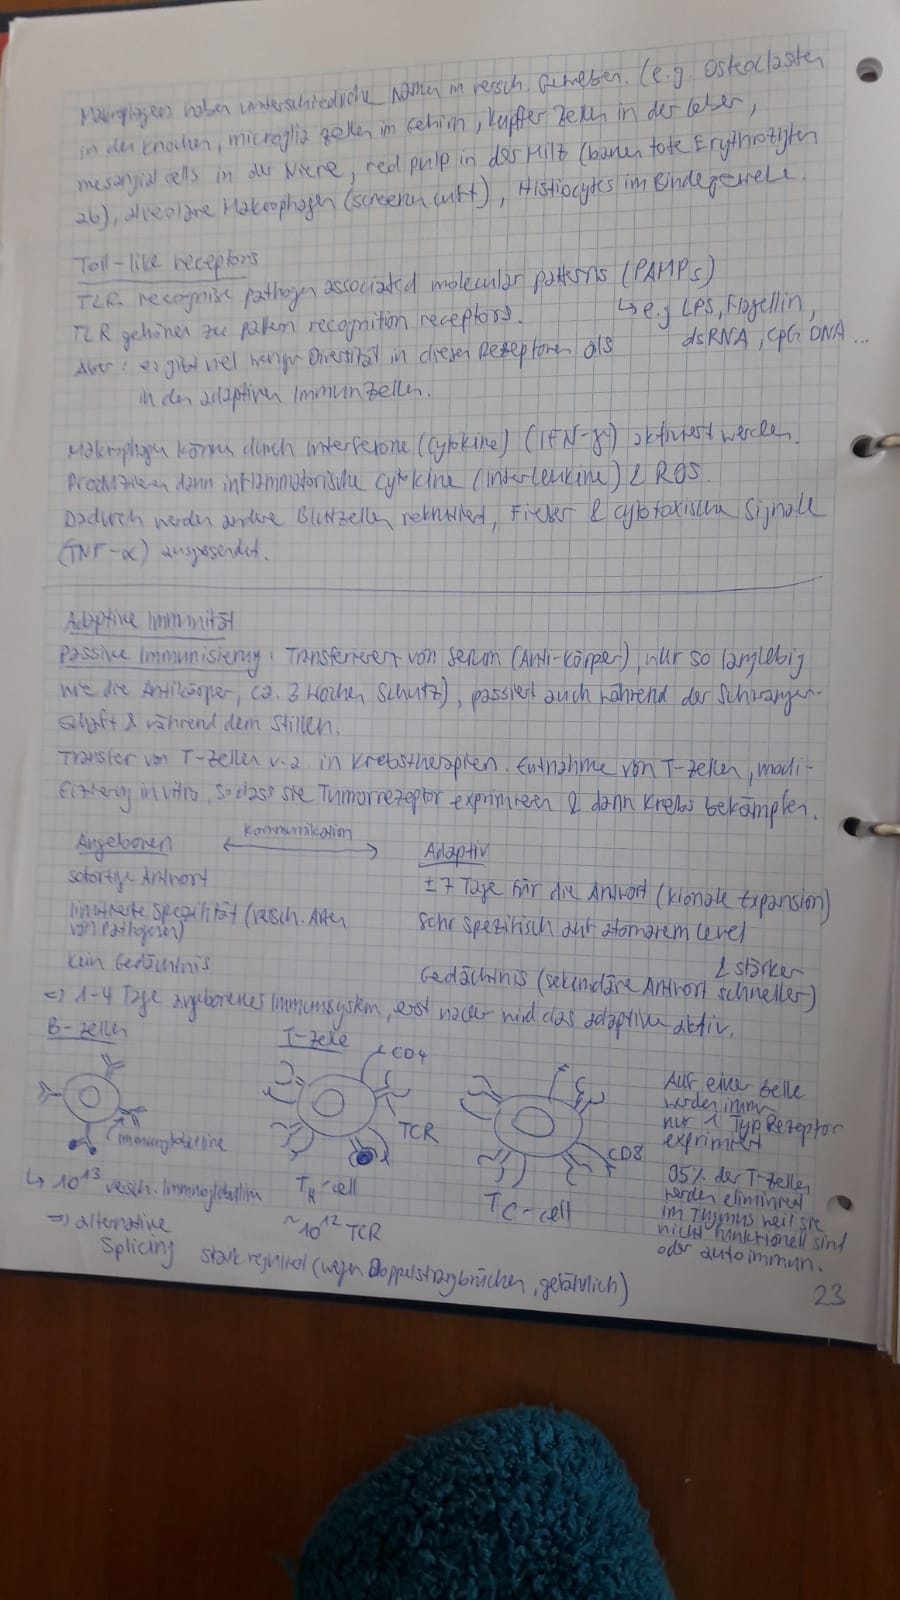 Makrophagen haben unterschiedliche Namen in versch. Geweben. (e.g. Osteoclasten
in den Knochen, microglia Zellen im Gehirn, Kupffer Zellen in der Leber,
mesangial cells in der Niere, red pulp in der Milz (bauen tote Erythrozyten
ab), alveoläre Makrophagen (screenen Luft), Histiocytes im Bindegewebe.
Toll-like receptors
TLR recognise pathogen associated molecular patterns (PAMPs)
↳ e.g. LPS, Flagellin,
TLR gehören zu pattern recognition receptors.
dsRNA, CpG DNA ...
Aber: es gibt viel weniger Diversität in diesen Rezeptoren als
in den adaptiven Immunzellen.
Makrophagen können durch Interferone (Cytokine) (IFN-γ) aktiviert werden.
Produzieren dann inflammatorische Cytokine (Interleukine) & ROS.
Dadurch werden andere Blutzellen rekrutiert, Fieber & cytotoxische Signale
(TNF-α) ausgesendet.
Adaptive Immunität
Passive Immunisierung: Transferiert von Serum (Anti-Körper), nur so langlebig
wie die Antikörper, ca. 3 Wochen Schutz), passiert auch während der Schwanger-
schaft & während dem Stillen.
Transfer von T-Zellen v.a. in Krebstherapien. Entnahme von T-Zellen, modi-
fizierung in vitro, sodass sie Tumorrezeptor exprimieren & dann Krebs bekämpfen.
Angeboren ← Kommunikation → Adaptiv
sofortige Antwort
± 7 Tage für die Antwort (klonale Expansion)
limitierte Spezifität (versch. Arten
von Pathogenen)
sehr spezifisch auf atomarem Level
kein Gedächtnis
& stärker
Gedächtnis (sekundäre Antwort schneller)
=> 1-4 Tage angeborenes Immunsystem, erst nachher wird das adaptive aktiv.
B-Zellen
T-Zelle
CD4
Immunglobuline
TCR
CD8
Auf einer Zelle
werden immer
nur 1 Typ Rezeptor
exprimiert
↳ 10¹³ versch. Immunglobulin
T_H-cell
T_C-cell
95% der T-Zellen
werden eliminiert
im Thymus weil sie
nicht funktionell sind
oder autoimmun.
=> alternative
Splicing
~10¹² TCR
stark reguliert (wegen Doppelstrangbrüchen, gefährlich)
23